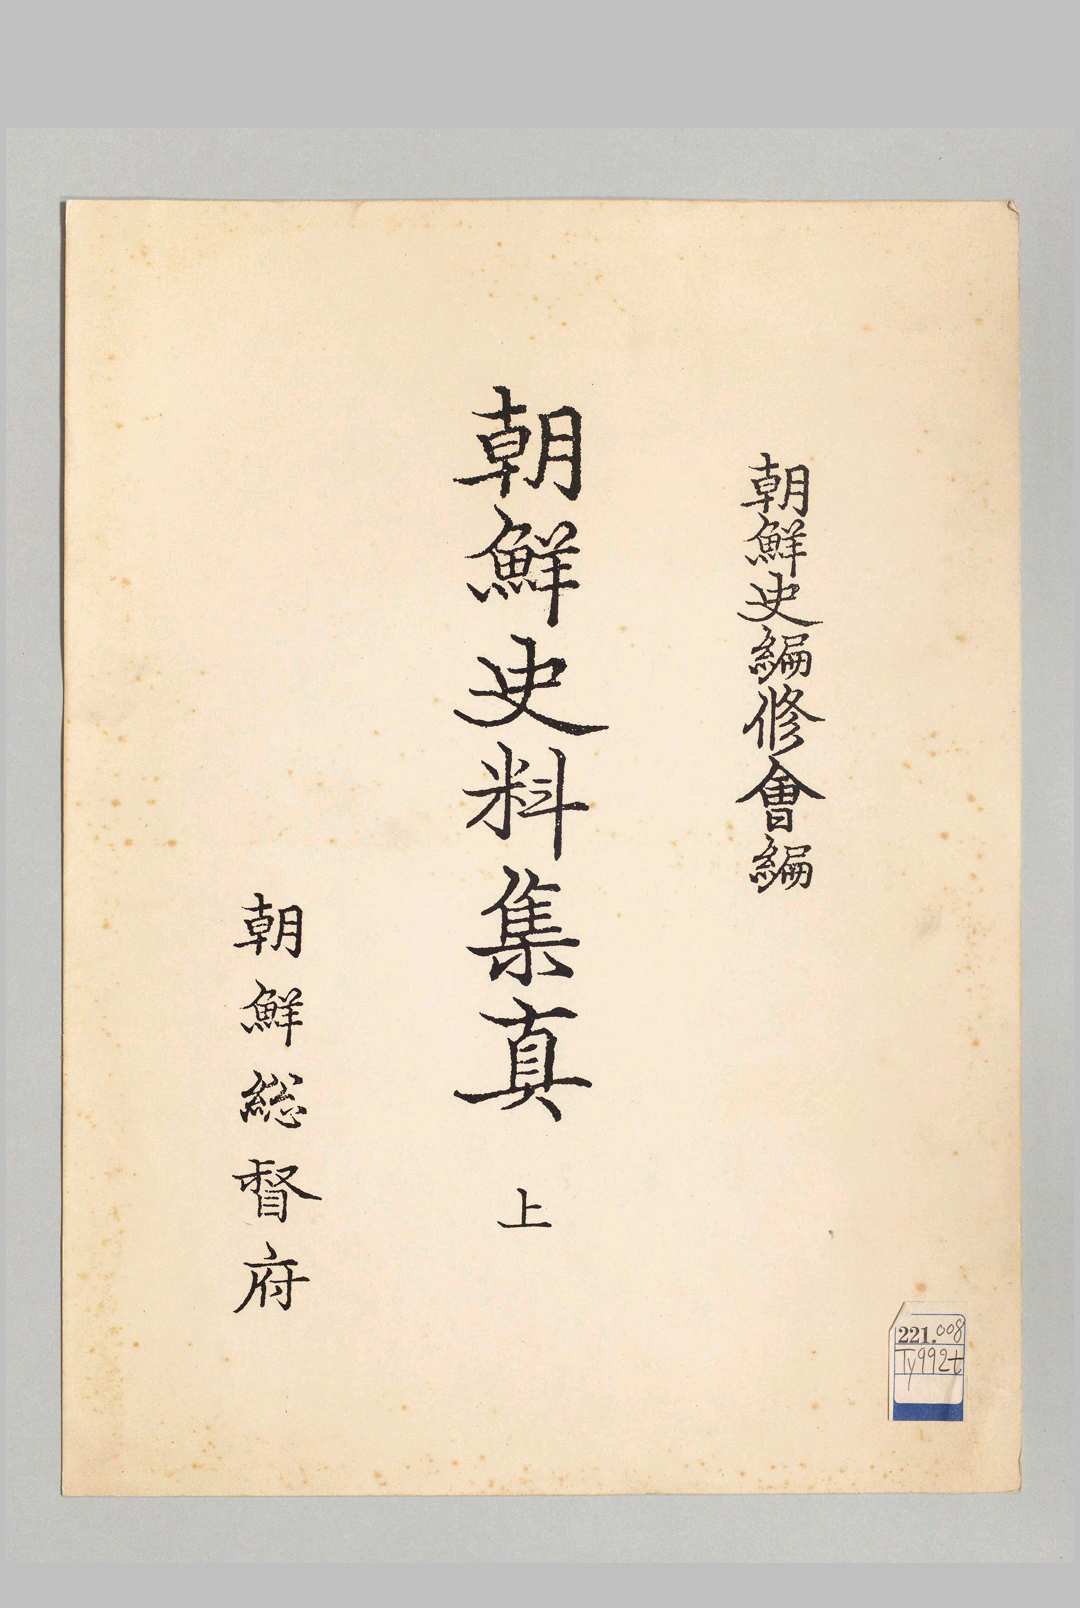 朝鮮史編修會編
朝鮮史料集真 上
朝鮮総督府
221.008
Ty992t